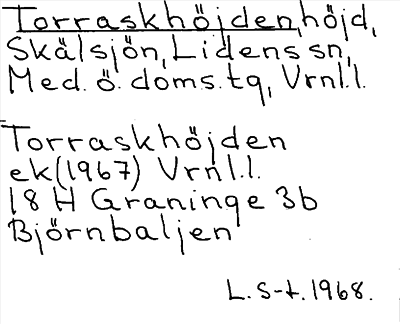 Torraskhöjden, höjd,
Skälsjön, Lidens sn,
Med. ö. doms. tg, Vrnl.l.
Torraskhöjden
ek (1967) Vrnl.l.
18 H Graninge 3b
Björnbaljen
L. S-t. 1968.